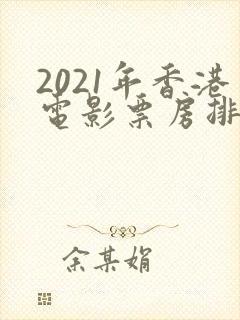 2021年香港
電影票房排
余某娟